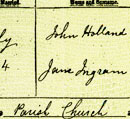 Married. Name and Surname.
John Holland
4 Jane Ingram
Parish Church